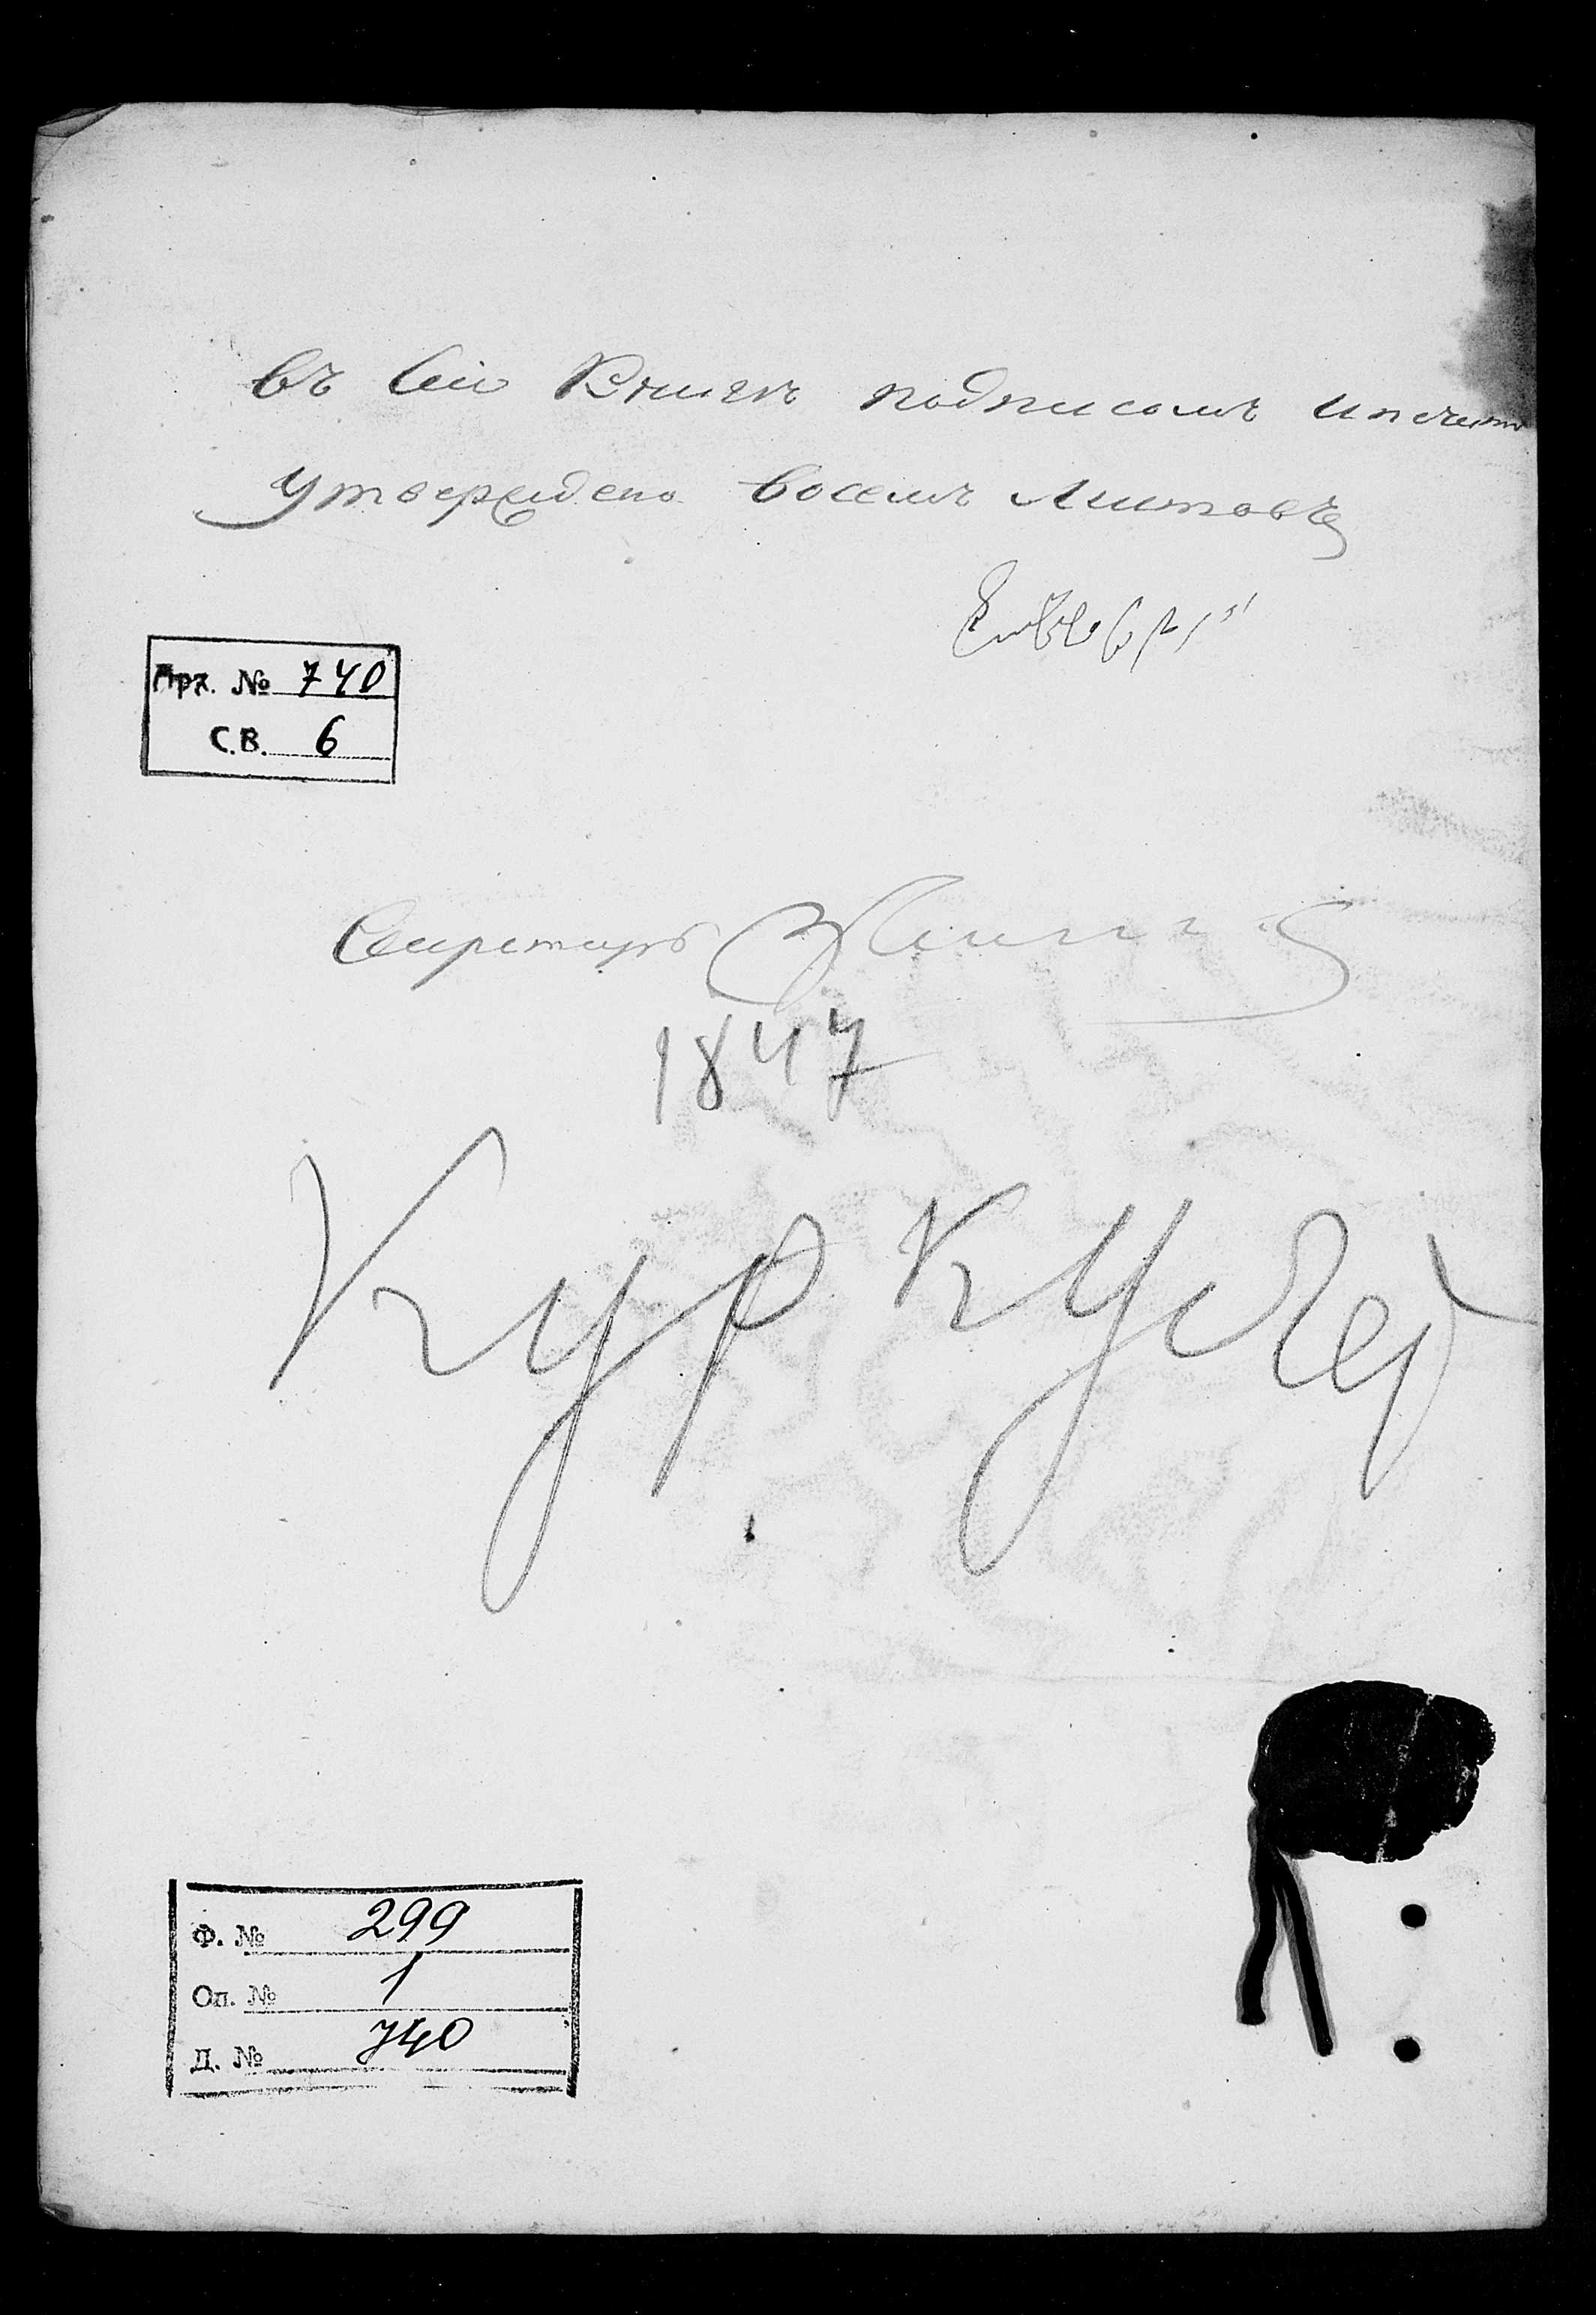 въ сей Книгъ подписомъ ипечат
утверждено восемъ Листовъ
Арх. № 740
С.В. 6
Секретарь
1847
Кур К
Ф. № 299
Оп. № 1
Д. № 740